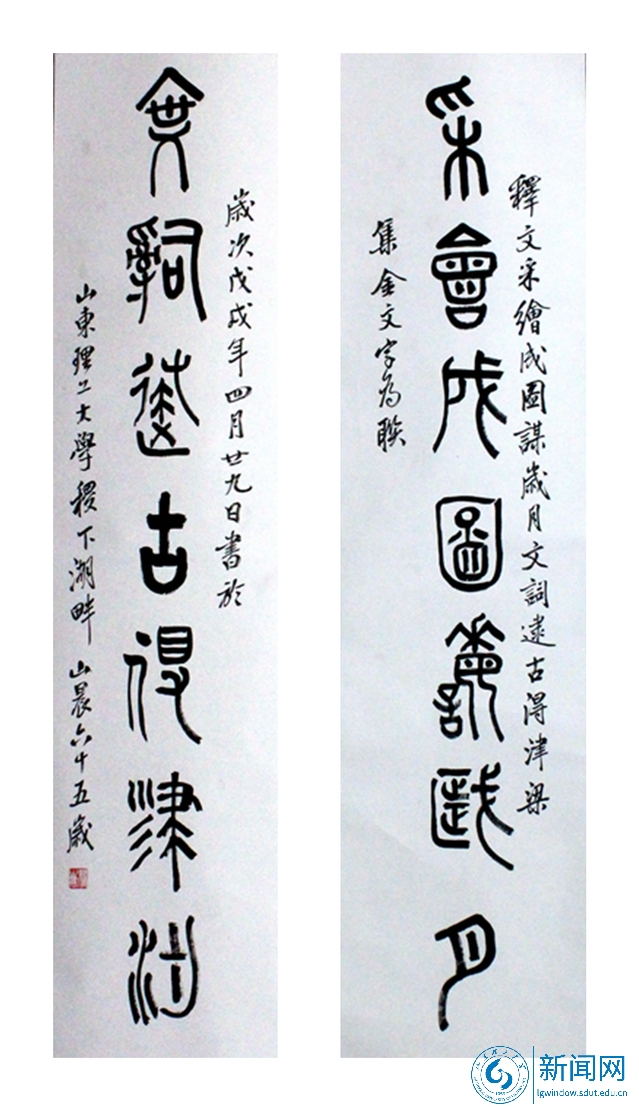 釋文采繪成圖謀歲月文詞逮古得津梁
采會成圖謀歲月
集金文字為聯
歲次戊戌年四月廿九日書於
文詞逮古得津梁
山東理工大學稷下湖畔 山晨六十五歲
新闻网
lgwindow.sdut.edu.cn